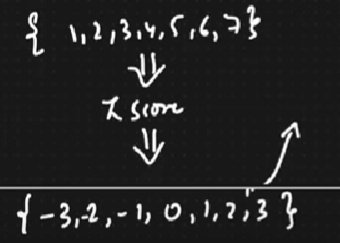 { 1,2,3,4,5,6,7}
⇓
Z score
⇓
{ -3,-2,-1, 0,1,2,3 }